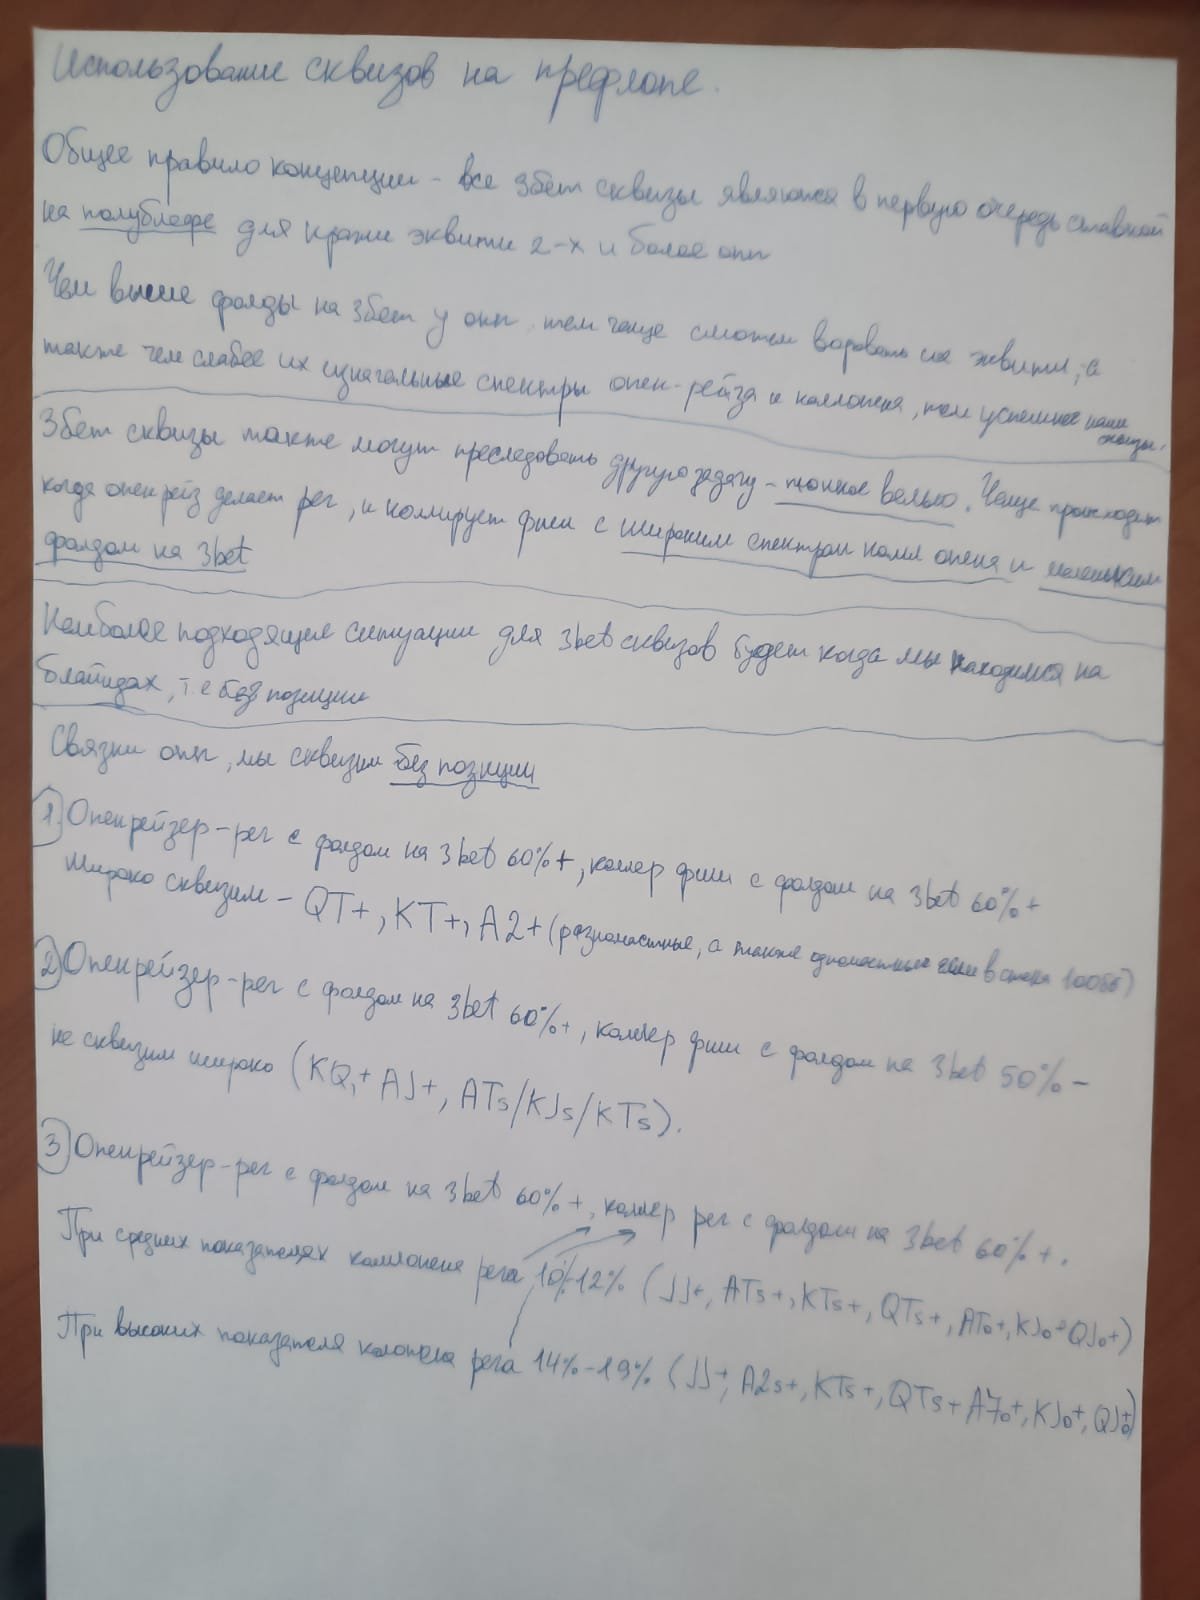 Использование сквизов на префлопе.
Общее правило концепции - все 3бет сквизы являются в первую очередь ставкой
на полублефе для кражи эквити 2-х и более опп
Чем выше фолды на 3бет у опп, тем чаще сможем воровать их эквити, а
также чем слабее их изначальные спектры опен-рейза и коллопена, тем успешнее наши
сквизы.
3бет сквизы также могут преследовать другую задачу - тонкое велью. Чаще происходит
когда опен рейз делает рег, и коллирует фиш с широким спектром колл опена и маленьким
фолдом на 3bet
Наиболее подходящие ситуации для 3bet сквизов будет когда мы находимся на
блайндах, т.е без позиции
Связки опп, мы сквизим без позиции
1. Опенрейзер-рег с фолдом на 3bet 60%+, коллер фиш с фолдом на 3bet 60%+
Широко сквизим - QT+, KT+, A2+ (разномастные, а также одномастные если в стеке 100бб)
2) Опенрейзер-рег с фолдом на 3bet 60%+, коллер фиш с фолдом на 3bet 50%-
не сквизим широко (KQ,+ AJ+, ATs/KJs/KTs).
3 Опенрейзер-рег с фолдом на 3bet 60%+, коллер рег с фолдом на 3bet 60%+.
При средних показателях коллопена рега 10%-12% (JJ+, ATs+, KTs+, QTs+, ATo+, KJo+ QJo+)
При высоких показателя колопена рега 14%-19% (JJ+, A2s+, KTs+, QTs+ A7o+, KJo+, QJo+)